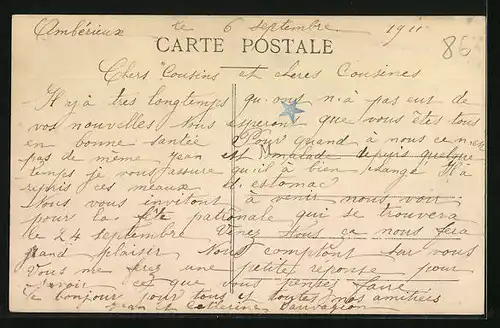 Ambérieux le 6 septembre 1911
86
CARTE POSTALE
Chers Cousins et cheres Cousines
Il a jà très longtemps qu'ons n'à pas eut de
vos nouvelles Nous esperont que vous êtes tous
en bonne santée Pour quand à nous ce n'est
pas de même Jean est malade depuis quelque
temps je vous assure qu'il à bien change Il à
repris ces meaux d'estomac
Nous vous invitont à venir nous voir
pour la fête patronale qui se trouvera
le 24 septembre Venez tous ca nous fera
grand plaisir Nous comptont sur vous
Vous me ferez une petite reponse pour
savoir cet que vous pensez faire
le bonjour pour tous et toutes mes amitiées
Jean et Catherine Sauvagion